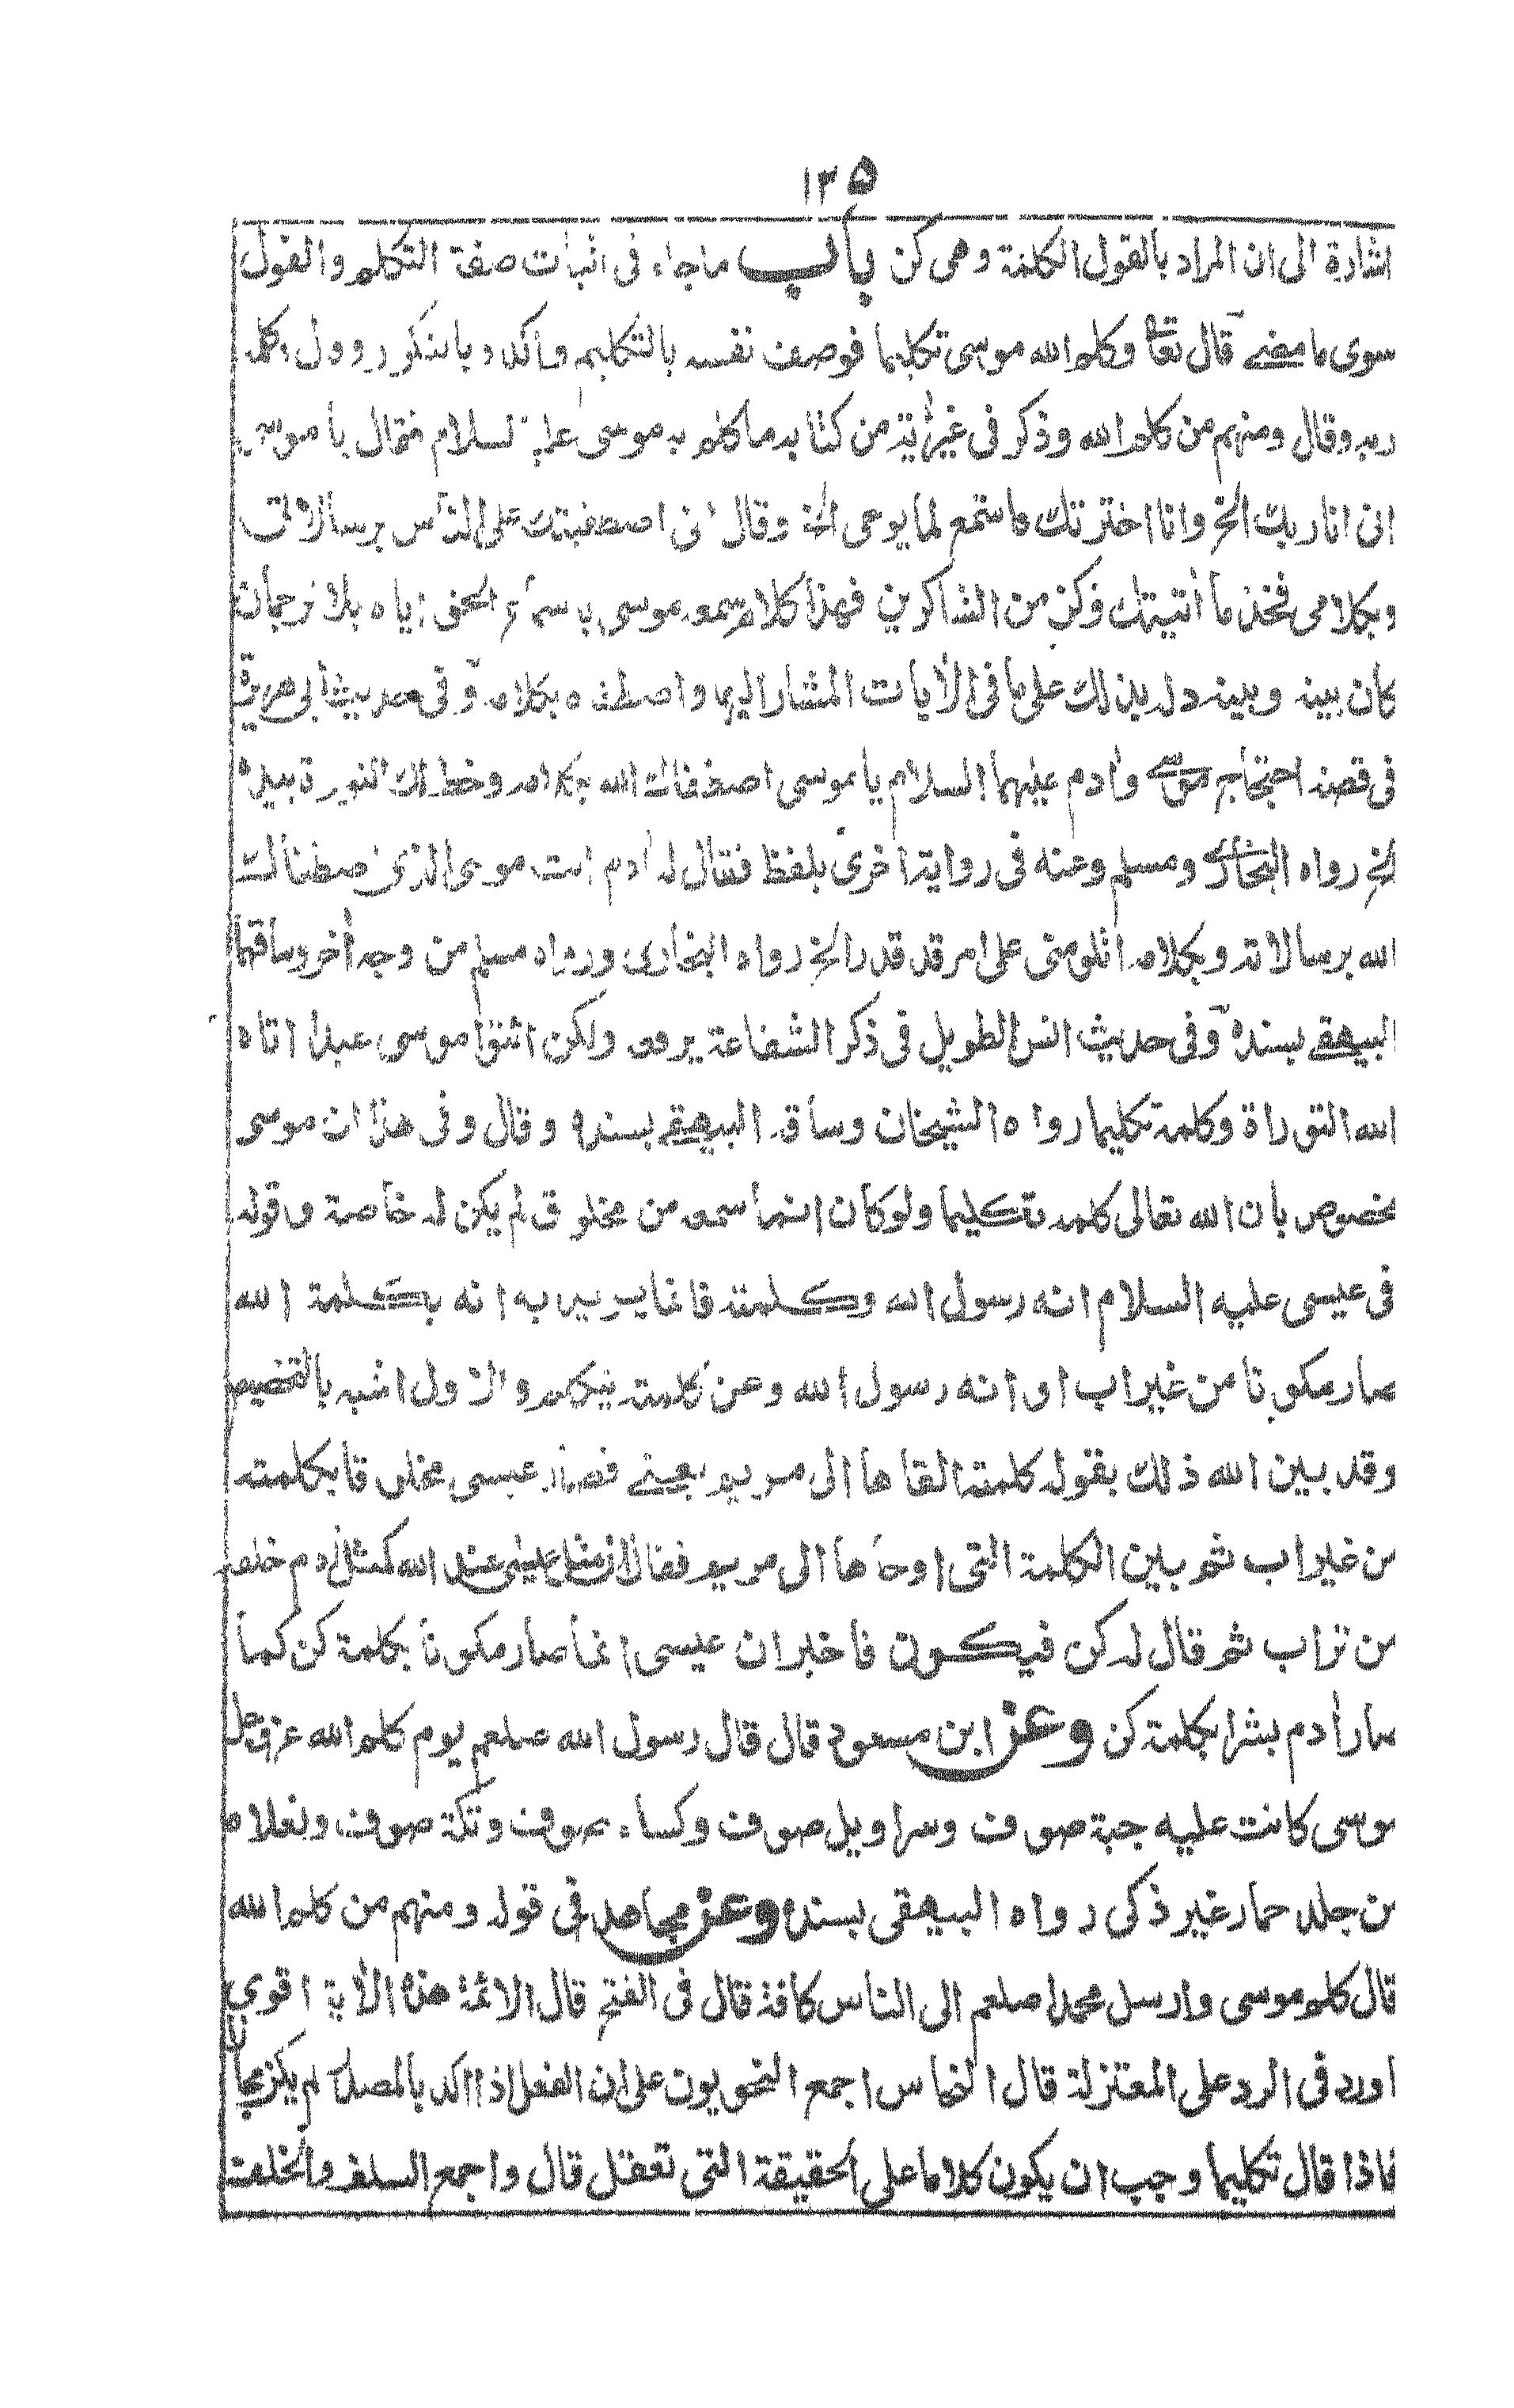 ١٣٥
اشارة الى ان المراد بالقول الكلمة وهى كن باب ماجاء فى اثبات صفة التكلم والقول
سوى ما مضى قال تعا وكلم الله موسى تكليما فوصف نفسه بالتكليم واكده بالتكرير وكلمه
ربه وقال ومنهم من كلم الله وذكر فى غير اٰية من كتابه ما كلم به موسى عليه السلام فقال يا موسى
انى انا ربك الخ وانا اخترتك فاستمع لما يوحى الخ وقال انى اصطفيتك على الناس برسالاتى
وبكلامى فخذ ما اٰتيتك وكن من الشاكرين فهذا كلام سمعه موسى باسماع الحق اياه بلا ترجمان
كان بينه وبينه دله بذلك على ما فى الاٰيات المشار اليها واصطفاه بكلامه وفى حديث ابى هريرة
فى قصة احتجاج موسى واٰدم عليهما السلام يا موسى اصطفاك الله بكلامه وخط لك التورة بيده
الخ رواه البخارى ومسلم وعنه فى رواية اخرى بلفظ فقال له اٰدم انت موسى الذى اصطفاك
الله برسالاته وبكلامه اتلومنى على امر قد قدر الخ رواه البخارى ورواه مسلم من وجه اٰخر وساقهما
البيهقے بسنده وفى حديث انس الطويل فى ذكر الشفاعة يرفعه ولكن ائتوا موسى عبدا اتاه
الله التوراة وكلمه تكليما رواه الشيخان وساقه البيهقے بسنده وقال وفى هذا ان موسى
مخصوص بان الله تعالى كلمه تكليما ولو كان انما سمعه من مخلوق لم يكن له خاصة وقوله
فى عيسى عليه السلام انه رسول الله وكلمته فانما يريد به انه بكلمة الله
صار مكونا من غير اب او انه رسول الله وعن كلمته يتكلم والاول اشبه بالتخصيص
وقد بين الله ذلك بقوله كلمته القاها الى مريم يعنے فصار عيسى مخلوقا بكلمته
من غير اب ثم بين الكلمة التى اوحاها الى مريم فقال ان مثل عيسى عند الله كمثل اٰدم خلقه
من تراب ثم قال له كن فيكون فاخبر ان عيسى انما صار مكونا بكلمة كن كما
صار اٰدم بشرا بكلمة كن وعن ابن مسعود قال قال رسول الله صلعم يوم كلم الله عز وجل
موسى كانت عليه جبة صوف وسراويل صوف وكساء صوف وتكة صوف ونعلاه
من جلد حمار غير ذكى رواه البيهقى بسنده وعن مجاهد فى قوله ومنهم من كلم الله
قال كلم موسى وارسل محمدا صلعم الى الناس كافة قال فى الفتح قال الائمة هذه الاٰية اقوى ما
اورد فى الرد على المعتزلة قال النحاس اجمع النحويون على ان الفعل اذا اكد بالمصدر لم يكن مجازا
فاذا قال تكليما وجب ان يكون كلاما على الحقيقة التى تعقل قال واجمع السلف والخلف